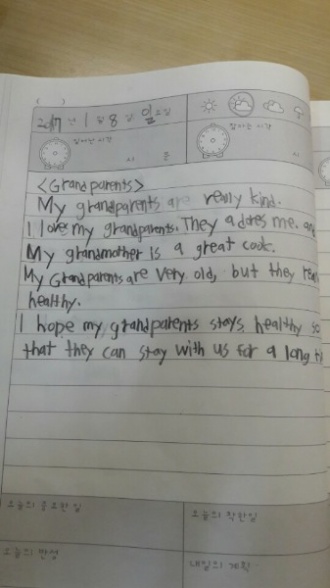 ( )
2017 년 1 월 8 일 일요일
일어난 시간
시 분
잠자는 시간
<Grandparents>
My grandparents are really kind.
I loves my grandparents. They adores me. an
My grandmother is a great cook.
My Grandparents are very old, but they rea
healthy.
I hope my grandparents stays, healthy so
that they can stay with us for a long ti
오늘의 중요한 일
오늘의 착한일
오늘의 반성
내일의 계획